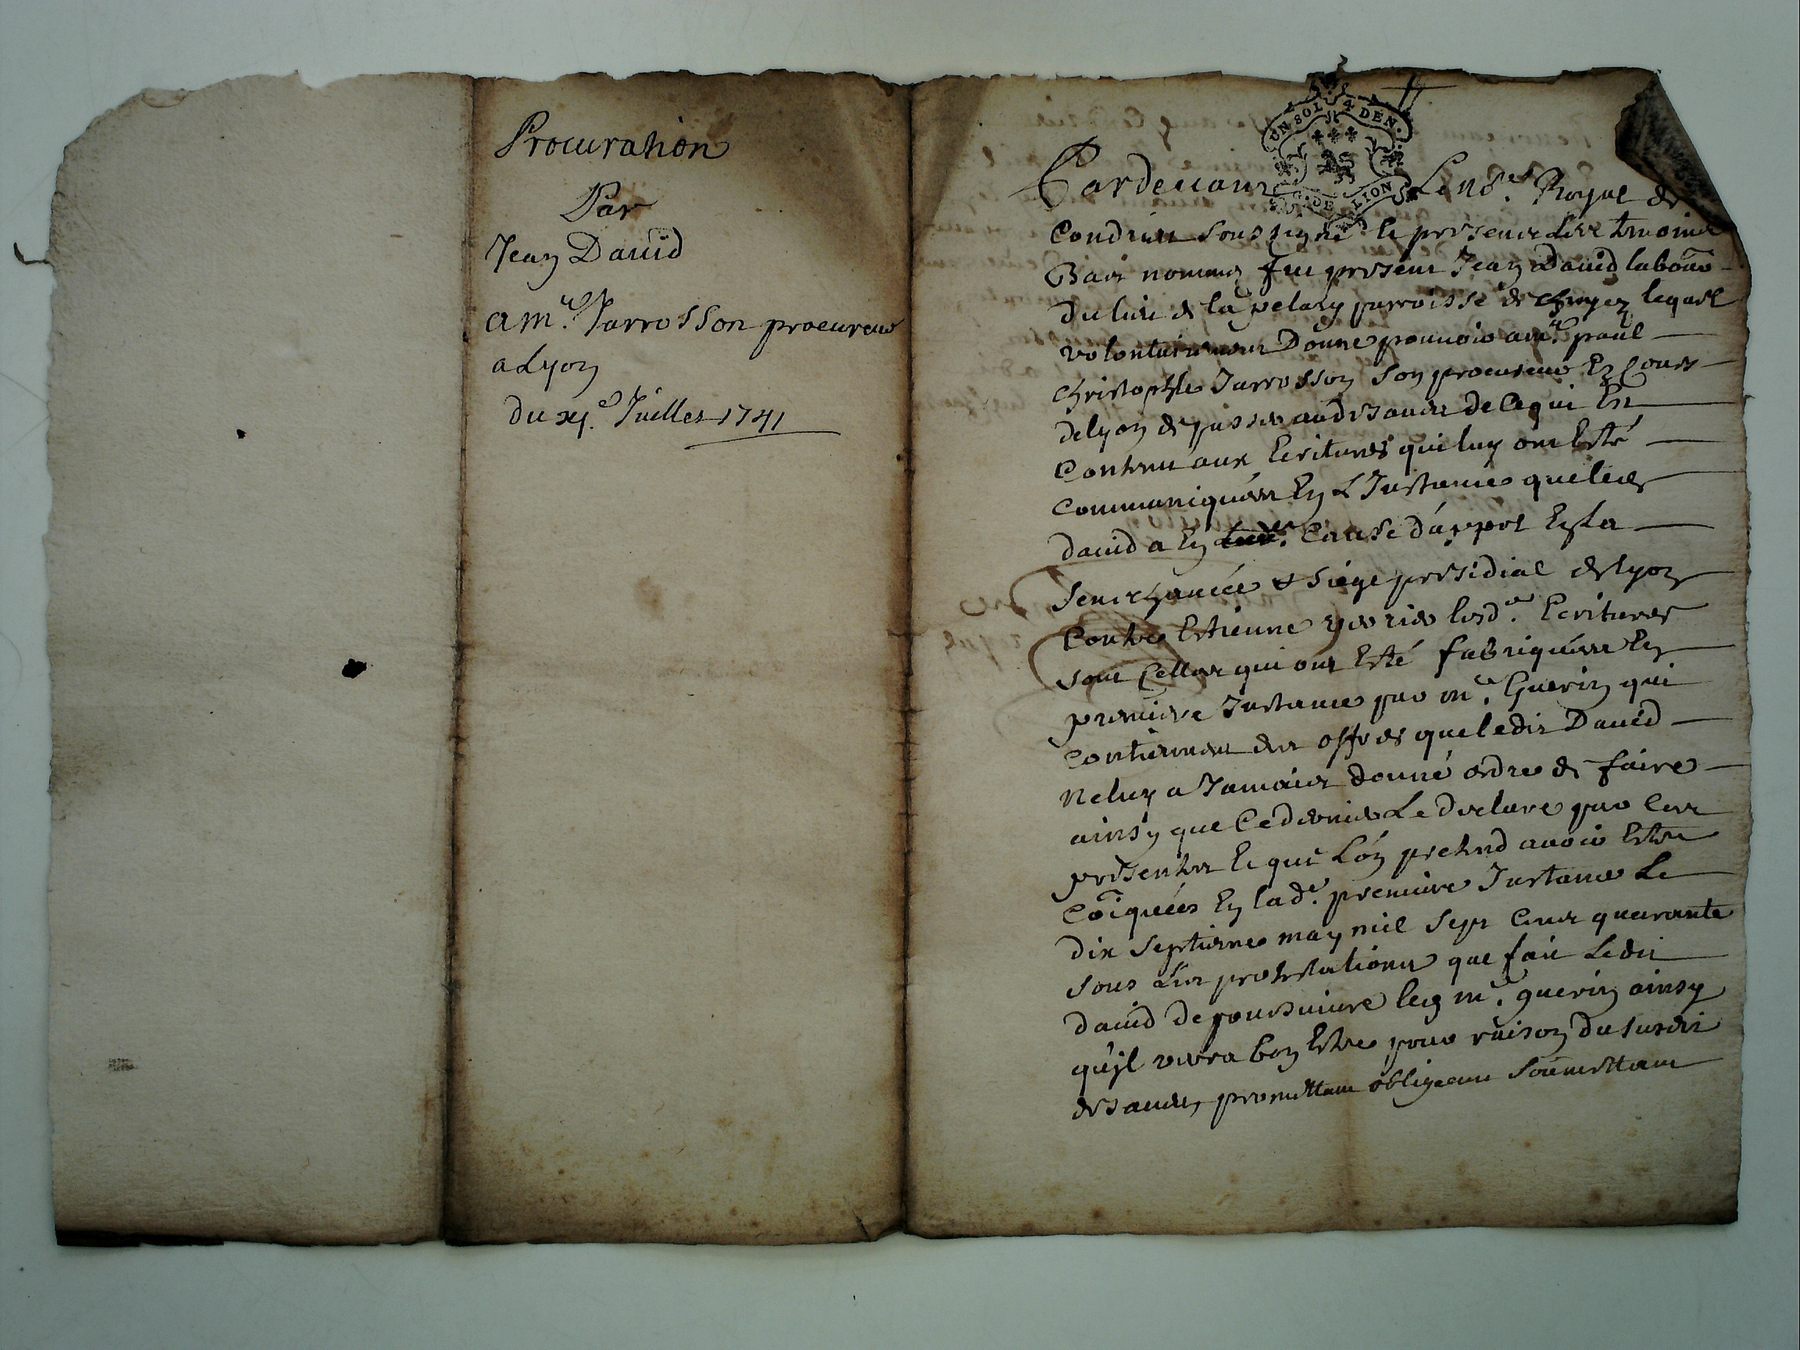 Procuration
Par
Jean David
a m.e Jarrosson procureur
a Lyon
du xj.e Juillet 1741
UN SOL 4 DEN.
G. DE LION
Pardevant Le no.re Royal de
Condrieu soussigné le present Les temoins
Bas nommés fut present Jean David labou.
du lieu de la pelary parroisse de lequel
volontairement Donne pouvoir a m.e paul
christophle Jarrosson son procureur Ez Cours
de lyon de passer au desaveu de Ce qui Est
Contenu aux Ecritures qui luy ont Esté
Communiquées En L'Instance que led.
david a En Cause d'appel En la
senechaucée & siege presidial de lyon
Contre Estienne lesd.es Ecritures
sont Celles qui ont Esté fabriquées En
premiere Instance par m.e Guerin qui
Contiennent des offres que ledit David
ne luy a Jamais donné ordre de faire
ainsy que Ce dernier Le declare par Ces
presentes Et que L'on pretend avoir Estre
Cõiquées En lad.e premiere Instance Le
dix septieme may mil sept Cent quarante
sous Les protestations que fait Ledit
david de poursuivre led m.e guerin ainsy
qu'jl verra bon Estre pour raison du susdit
desaveu, promettant obligeant soumettant